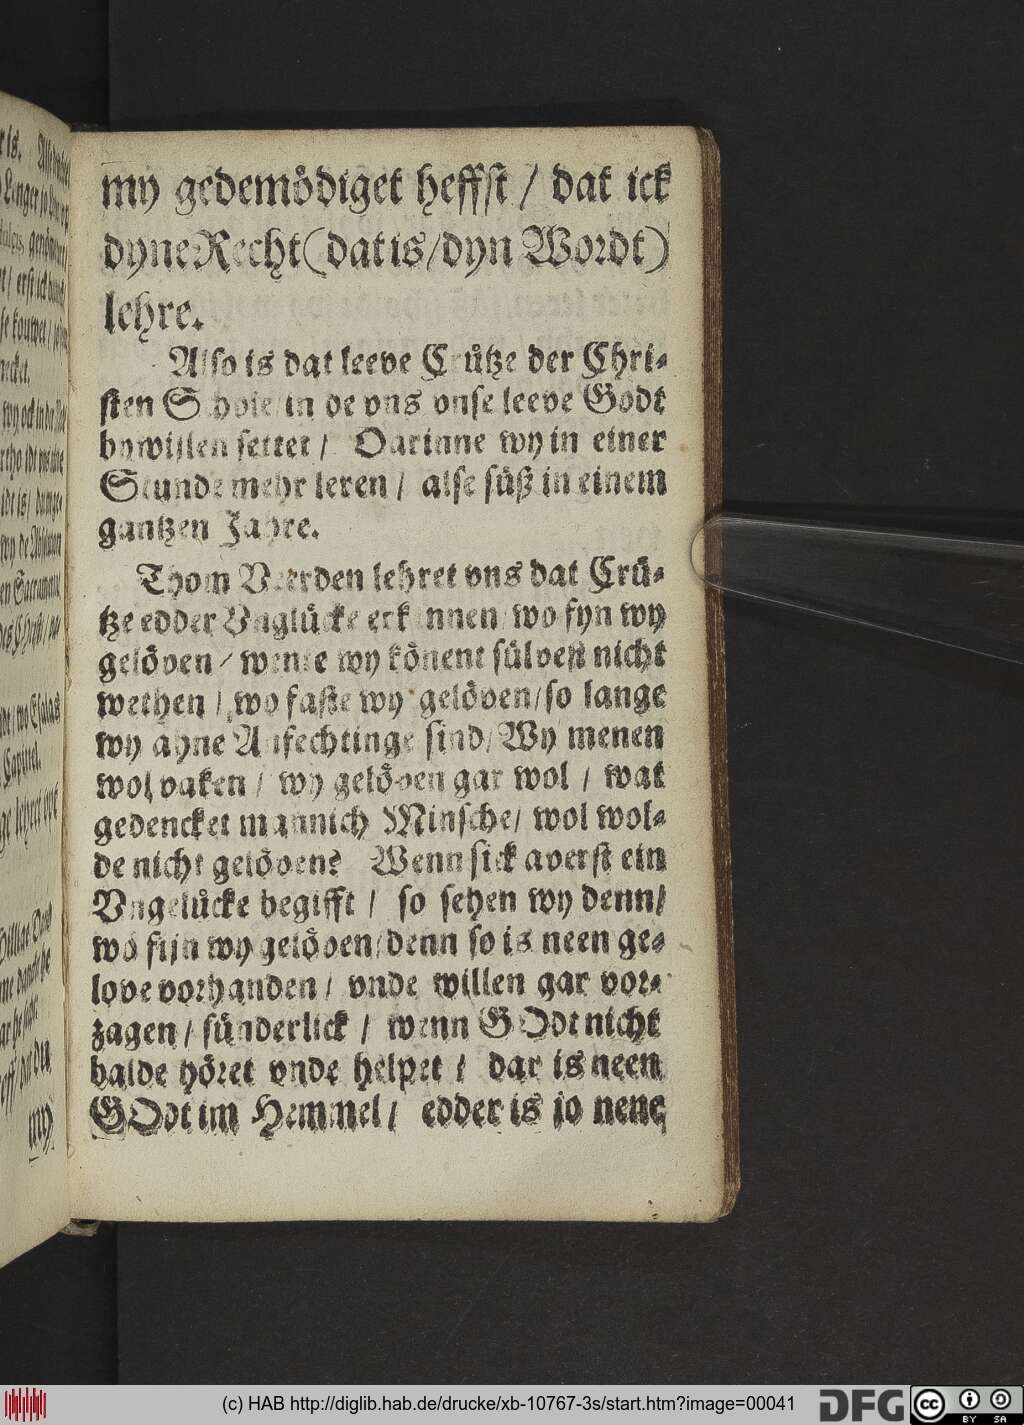 my gedemödiget heffst / dat ick
dyne Recht (dat is / dyn Wordt)
lehre.
Also is dat leeve Crütze der Chri-
sten Schole / in de vns vnse leeve Godt
bywilen settet / Darinne wy in einer
Stunde mehr leren / alse süß in einem
gantzen Jahre.
Thom Veerden lehret vns dat Crü-
tze edder Vnglücke erkennen / wo fyn wy
gelöven / wente wy könent sülvest nicht
wethen / wo faste wy gelöven / so lange
wy ahne Anfechtinge sind / Wy menen
wol vaken / wy gelöven gar wol / wat
gedencket mannich Minsche / wol wol-
de nicht gelöven? Wenn sick averst ein
Vngelücke begifft / so sehen wy denn /
wo fijn wy gelöven / denn so is neen ge-
love vorhanden / vnde willen gar vor-
zagen / sünderlick / wenn GOdt nicht
balde höret vnde helpet / dar is neen
GOdt im Hemmel / edder is jo nene
my
(c) HAB http://diglib.hab.de/drucke/xb-10767-3s/start.htm?image=00041
DFG
cc
BY SA